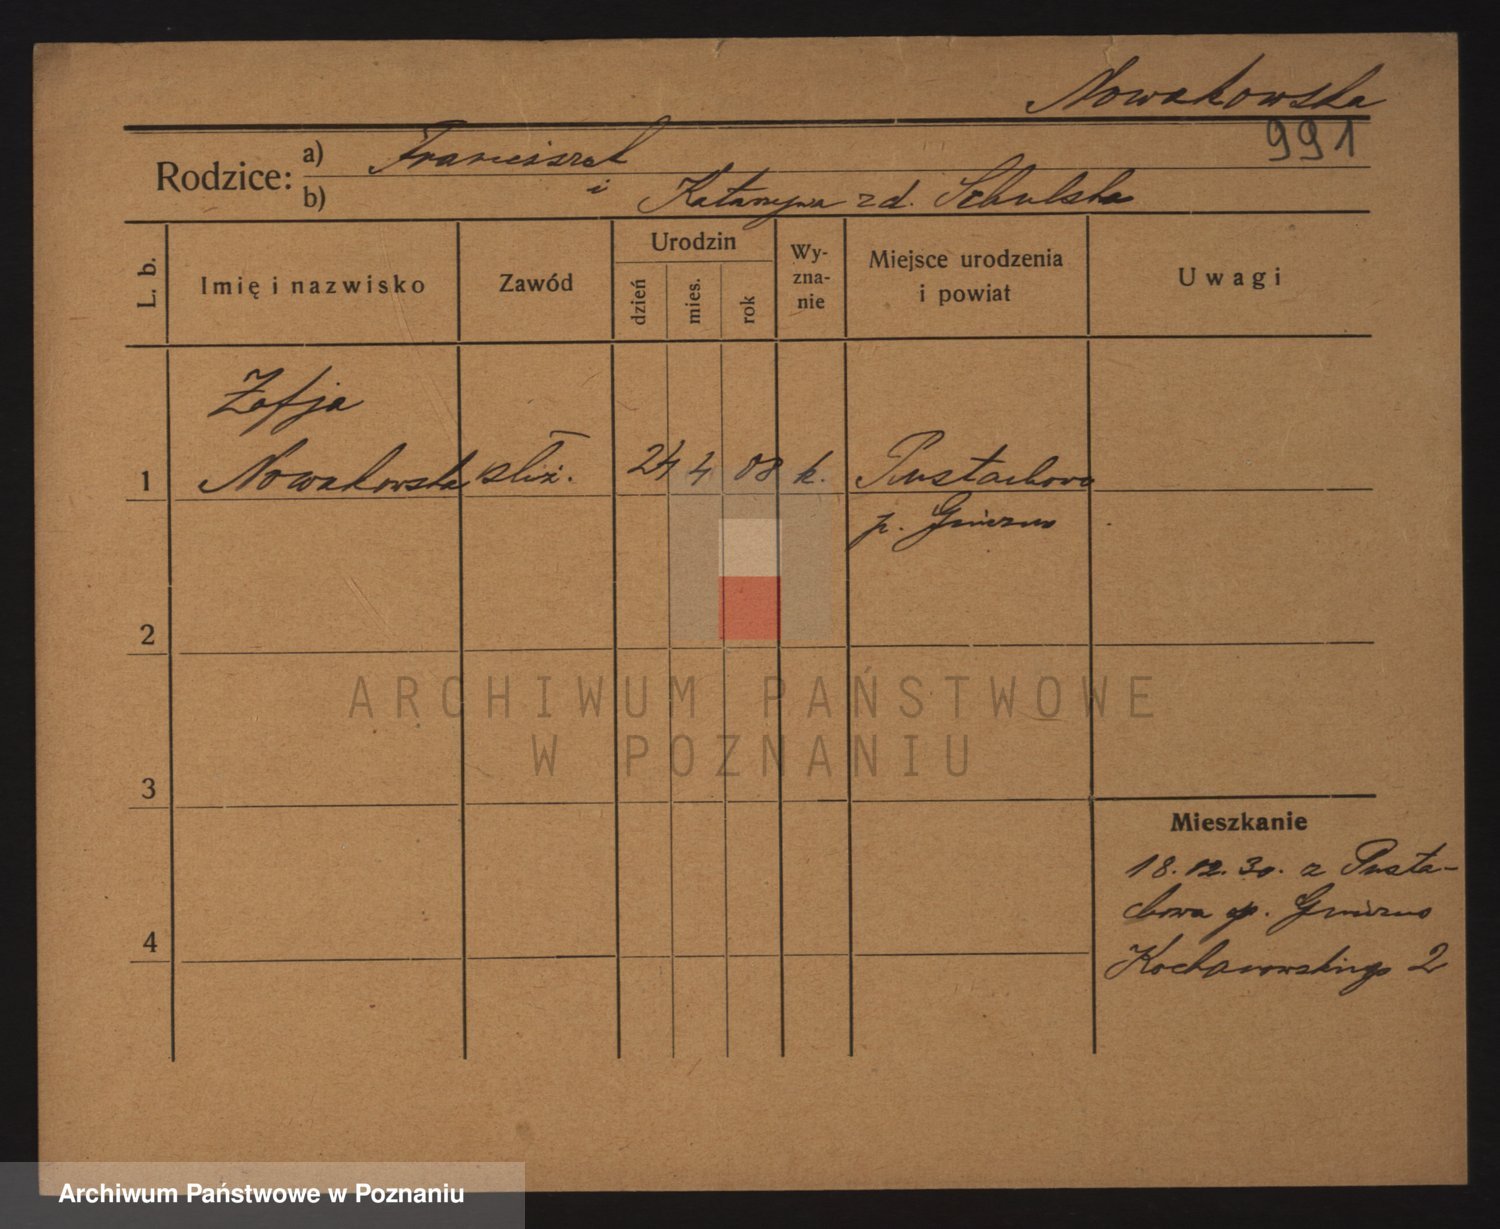 Nowakowska
991
Rodzice: a) Franciszek
b) i Katarzyna z d. Schulska
L. b.
Imię i nazwisko
Zawód
Urodzin
dzień
mies.
rok
Wy-
zna-
nie
Miejsce urodzenia
i powiat
Uwagi
Zofja
1 Nowakowska służ. 24 4 08 k. Pustachowo
p. Gniezno
2
3
4
Mieszkanie
18.12.30. z Pusta-
chowa p. Gniezno
Kochanowskiego 2
ARCHIWUM PAŃSTWOWE
W POZNANIU
Archiwum Państwowe w Poznaniu